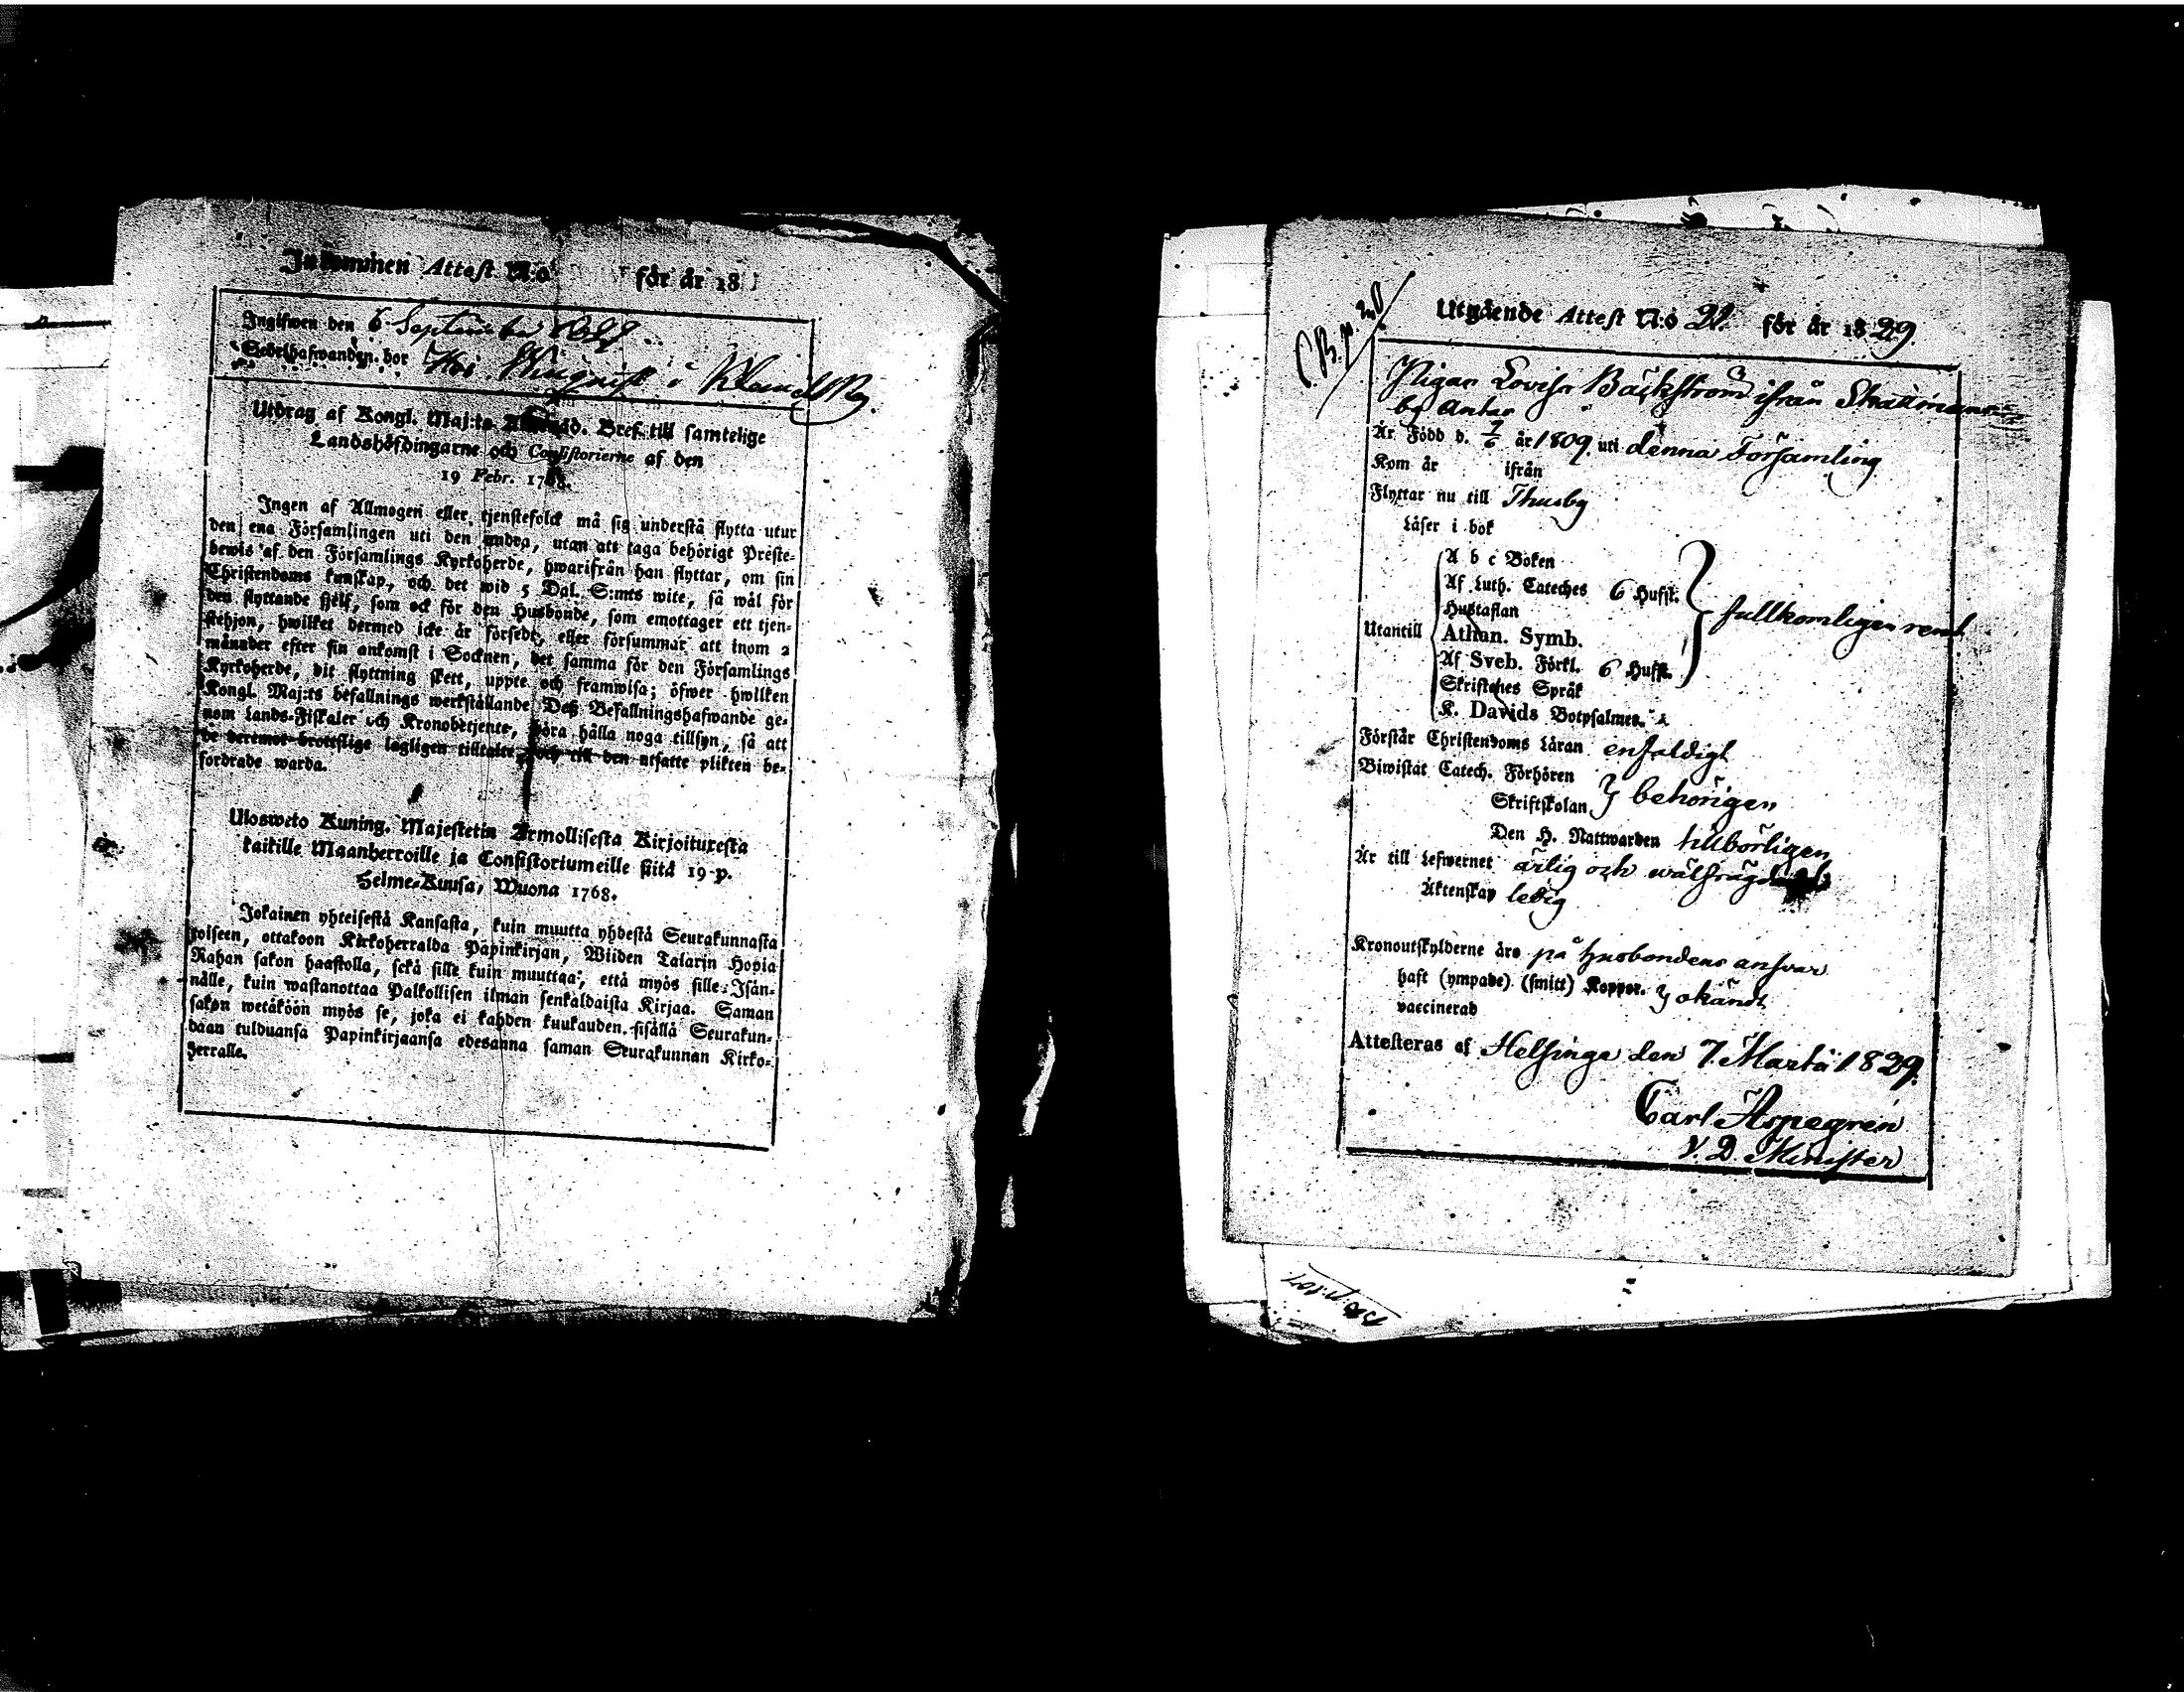 Inkommen Attest N:o för år 18
Inglfwen den 6 September
Hos Winqvist i Klemets By
Utdrag af Kongl. Maj:ts Bref till samtelige
Landshöfdingarne och Consistorierne af den
19 Febr. 1768.
Ingen af Allmogen eller tjenstefolck må sig understå flytta utur
den ena Församlingen uti den andra, utan att taga behörigt Preste-
bewis af den Församlings Kyrkoherde, hwarifrån han flyttar, om sin
Christendoms kunskap, och det wid 5 Dal. S:mts wite, så wäl för
den flyttande sjelf, som ock för den Husbonde, som emottager ett tjen-
stehjon, hwilket dermed icke är försedt, eller försummar att inom 2
månader efter sin ankomst i Socknen, det samma för den Församlings
Kyrkoherde, dit flyttning skett, uppte och framwisa; öfwer hwilken
Kongl. Maj:ts befallnings werkställande Deß Befallningshafwande ge-
nom Lands-Fiskaler och Kronobetjente, böra hålla noga tillsyn, så att
de deremot brottslige lagligen tilltalte, och till den utsatte plikten be-
fordrade warda.
Ulosweto Kuning. Majestetin Armollisesta Kirjoituxesta
kaikille Maanherroille ja Consistoriumeille siitä 19 p.
Helme-Kuusa, Wuona 1768.
Jokainen yhteisestä Kansasta, kuin muutta yhdestä Seurakunnasta
toiseen, ottakoon Kirkoherralda Papinkirjan, Wiiden Talarin Hopia
Rahan sakon haastolla, sekä sille kuin muuttaa, että myös sille Isän-
nälle, kuin wastanottaa Palkollisen ilman senkaldaista Kirjaa. Saman
sakon wetäköön myös se, joka ei kahden kuukauden sisällä Seurakun-
daan tulduansa Papinkirjaansa edesanna saman Seurakunnan Kirko-
herralle.
C. B. p. 20
Utgående Attest N:o 22. för år 1829
Pigan Lovisa Bäckström ifrån Skattmans
by Anttas
Är Född d. 7/6 år 1809 uti denna Församling
Kom år ifrån
Flyttar nu till Thusby
Läser i bok
A b c Boken
Af Luth. Cateches 6 Hufst.
Hustaflan
fullkomligen rent
Utantill Athan. Symb.
Af Sveb. Förkl. 6 Hufst.
Skriftenes Språk
K. Davids Botpsalmer.
Förstår Christendoms Läran enfaldigt
Biwistat Catech. Förhören
Skriftskolan } behörigen
Den H. Nattwarden tillbörligen
Är till Lefwernet ärlig och wälfrägdad
Äktenskap ledig
Kronoutskylderne äro på husbondens ansvar
haft (ympade) (smitt) Koppor. } okändt
vaccinerad
Attesteras af Helsinge den 7. Martii 1829.
Carl Aspegrén
V. D. Minister